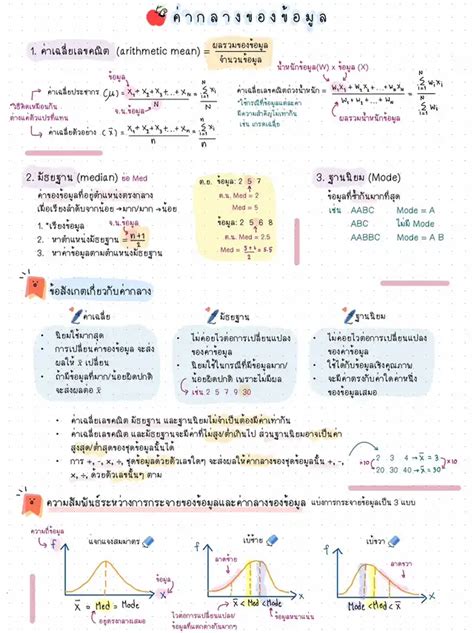 ค่ากลางของข้อมูล
1. ค่าเฉลี่ยเลขคณิต (arithmetic mean) = ผลรวมของข้อมูล / จำนวนข้อมูล
ข้อมูล
ค่าเฉลี่ยประชากร (μ) = X₁ + X₂ + X₃ + ... + X_N / N = Σ_{i=1}^{N} X_i / N
*วิธีคิดเหมือนกัน
ต่างแค่ตัวแปรที่แทน
จ.น.ข้อมูล
ค่าเฉลี่ยตัวอย่าง (x̄) = X₁ + X₂ + X₃ + ... + X_n / n
น้ำหนักข้อมูล(W) x ข้อมูล (X)
ค่าเฉลี่ยเลขคณิตถ่วงน้ำหนัก =
*ใช้กรณีที่ข้อมูลแต่ละค่า
มีความสำคัญไม่เท่ากัน
เช่น เกรดเฉลี่ย
ผลรวมน้ำหนักข้อมูล
2. มัธยฐาน (median) ย่อ Med
ค่าของข้อมูลที่อยู่ตำแหน่งตรงกลาง
เมื่อเรียงลำดับจากน้อย →มาก/มาก →น้อย
จ.น.ข้อมูล
1. *เรียงข้อมูล
2. หาตำแหน่งมัธยฐาน = n+1 / 2
3. หาค่าข้อมูลตามตำแหน่งมัธยฐาน
ต.ย. ข้อมูล: 2 5 7
ต.น. Med = 2
Med = 5
ข้อมูล: 2 5 6 8
ต.น. Med = 2.5
Med = 5+6 / 2 = 5.5
3. ฐานนิยม (Mode)
ข้อมูลที่ซ้ำกันมากที่สุด
เช่น AABC Mode = A
ABC ไม่มี Mode
AABBC Mode = A B
ข้อสังเกตเกี่ยวกับค่ากลาง
ค่าเฉลี่ย
• นิยมใช้มากสุด
• การเปลี่ยนค่าของข้อมูล จะส่ง
ผลให้ x̄ เปลี่ยน
• ถ้ามีข้อมูลที่มาก/น้อยผิดปกติ
จะส่งผลต่อ x̄
มัธยฐาน
• ไม่ค่อยไวต่อการเปลี่ยนแปลง
ของค่าข้อมูล
• นิยมใช้ในกรณีที่มีข้อมูลมาก/
น้อยผิดปกติ เพราะไม่มีผล
เช่น 2 5 7 9 30
ฐานนิยม
• ไม่ค่อยไวต่อการเปลี่ยนแปลง
ของค่าข้อมูล
• ใช้ได้กับข้อมูลเชิงคุณภาพ
• จะมีค่าตรงกับค่าใดค่าหนึ่ง
ของข้อมูลเสมอ
• ค่าเฉลี่ยเลขคณิต มัธยฐาน และฐานนิยมไม่จำเป็นต้องมีค่าเท่ากัน
• ค่าเฉลี่ยเลขคณิต และมัธยฐานจะมีค่าที่ไม่สูง/ต่ำเกินไป ส่วนฐานนิยมอาจเป็นค่า
สูงสุด/ต่ำสุดของชุดข้อมูลนั้นได้
• การ +, -, x, ÷, ชุดข้อมูลด้วยตัวเลขใดๆ จะส่งผลให้ค่ากลางของชุดข้อมูลนั้น +, -,
x, ÷, ด้วยตัวเลขนั้นๆ ตาม
2 3 4 → x̄ = 3
×10 ×10
20 30 40 → x̄ = 30
ความสัมพันธ์ระหว่างการกระจายของข้อมูลและค่ากลางของข้อมูล แบ่งการกระจายข้อมูลเป็น 3 แบบ
ความถี่ข้อมูล
f
แจกแจงสมมาตร
ข้อมูล
x
x̄ = Med = Mode
อยู่ตรงกลางเสมอ
f
เบ้ซ้าย
ลาดซ้าย
x
x̄ < Med < Mode
ไวต่อการเปลี่ยนแปลง/
ข้อมูลที่แตกต่างกันมากๆ
ข้อมูลหนาแน่น
f
เบ้ขวา
ลาดขวา
x
Mode < Med < x̄